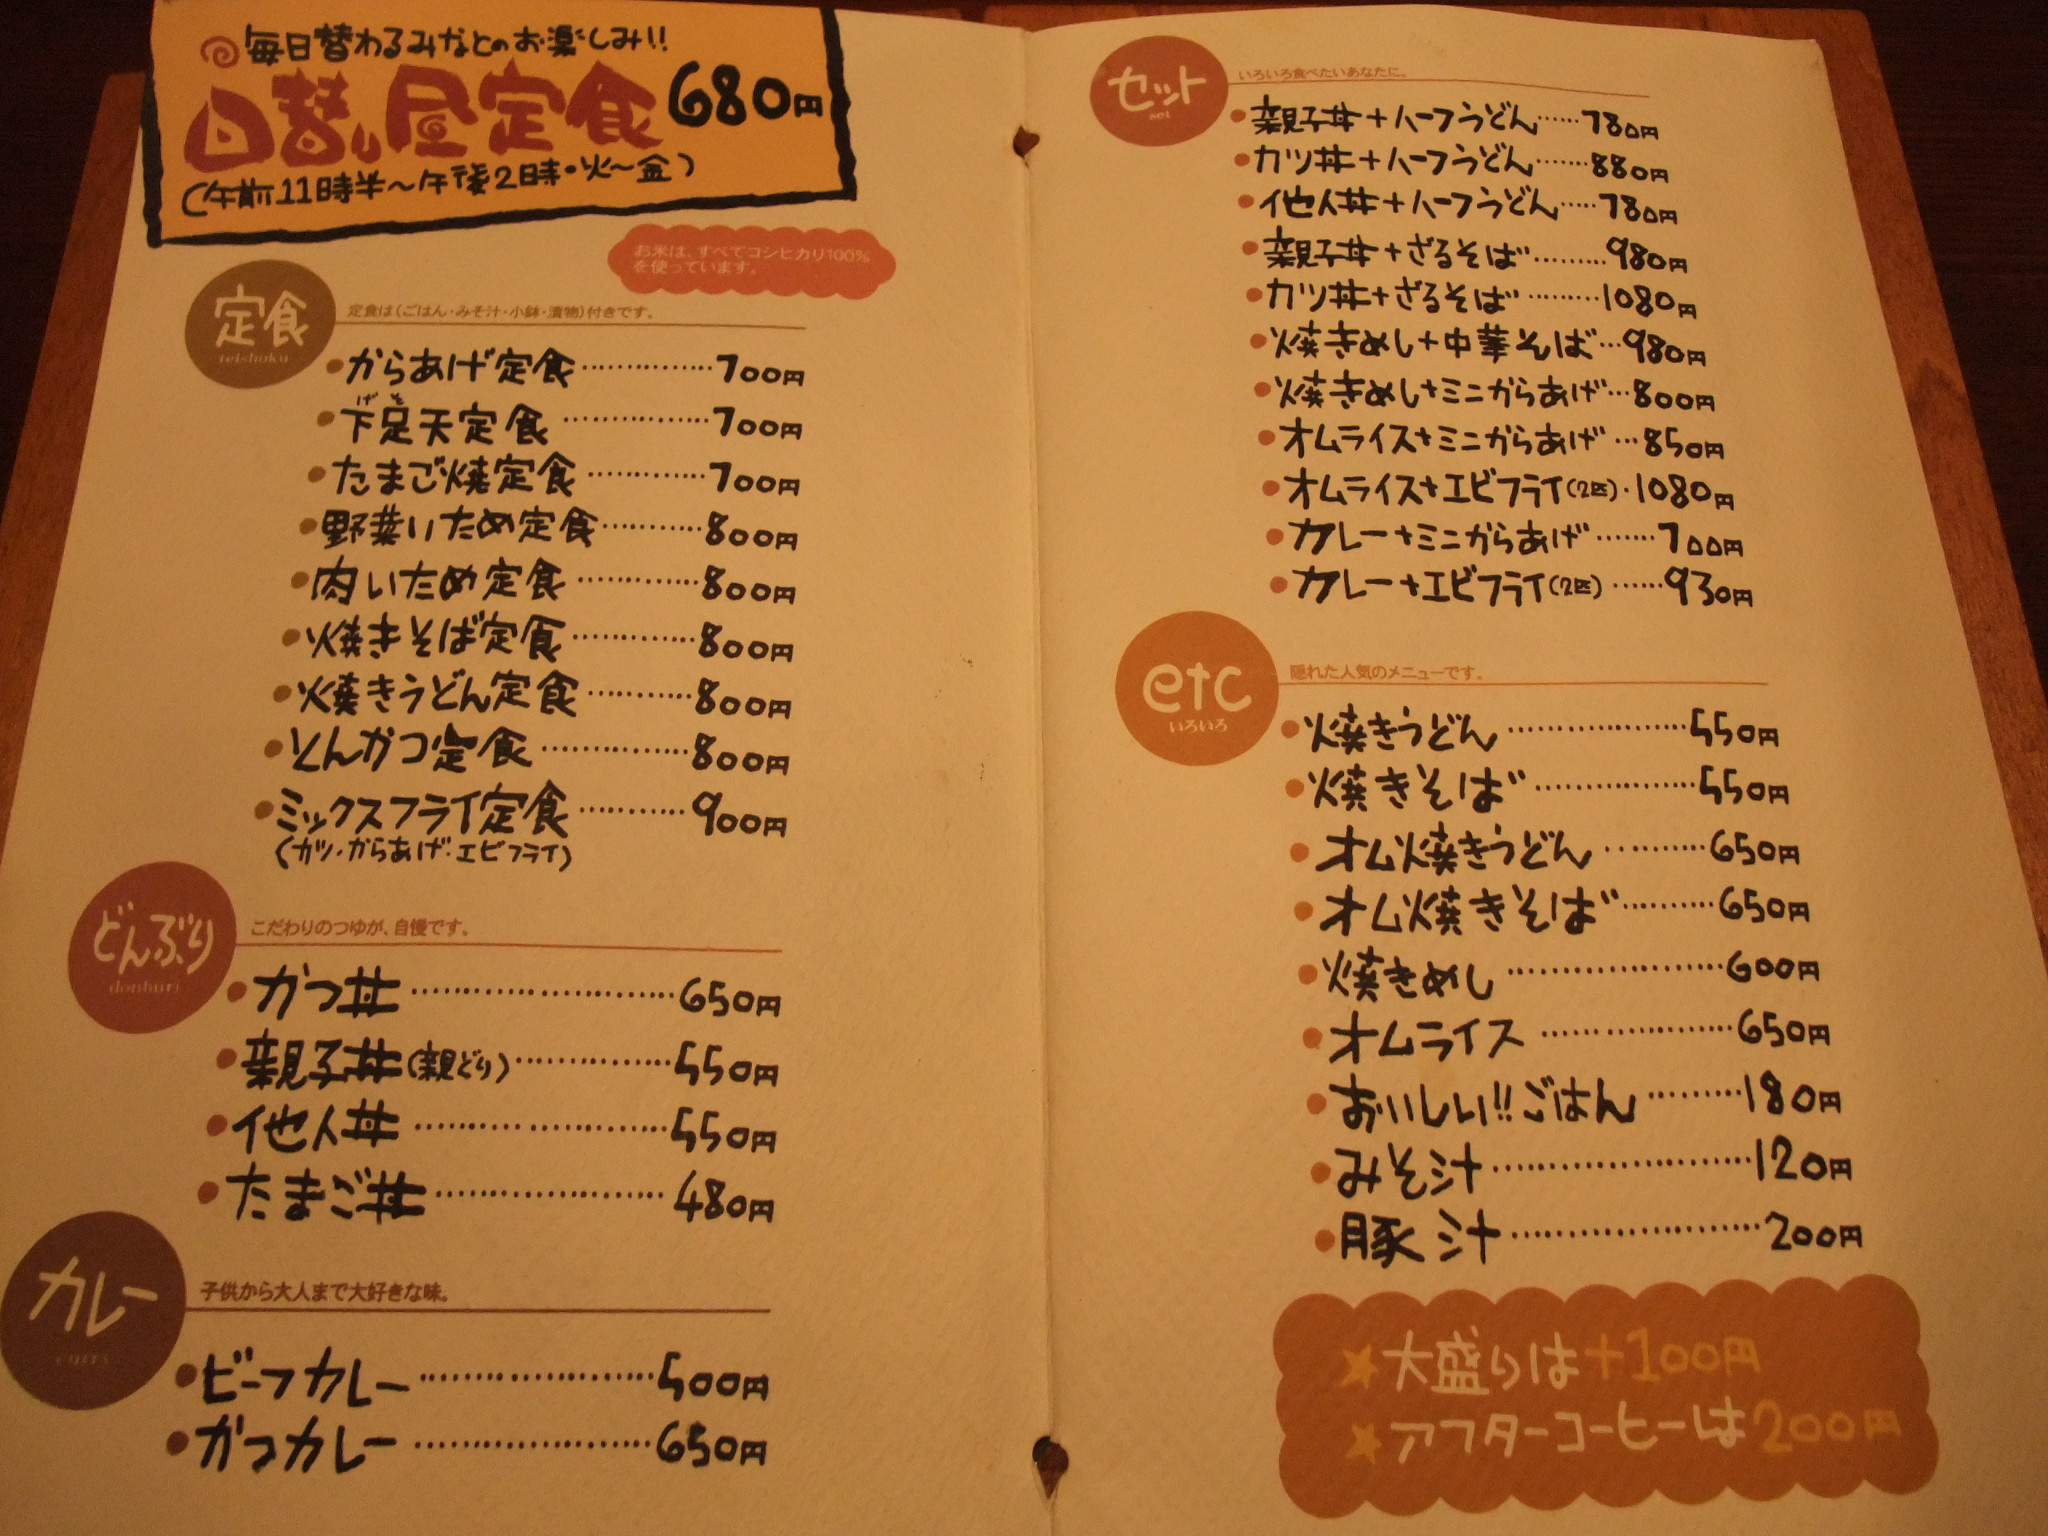 毎日替わるみなとのお楽しみ!!
日替り昼定食 680円
(午前11時半～午後2時・火～金)
お米は、すべてコシヒカリ100%
を使っています。
定食
teishoku
定食は(ごはん・みそ汁・小鉢・漬物)付きです。
からあげ定食 ............... 700円
げそ
下足天定食 ............... 700円
たまご焼定食 ............... 700円
野菜いため定食 ............ 800円
肉いため定食 ............... 800円
焼きそば定食 ............... 800円
焼きうどん定食 ............ 800円
とんかつ定食 ............... 800円
ミックスフライ定食 ............ 900円
(カツ・からあげ・エビフライ)
どんぶり
donburi
こだわりのつゆが、自慢です。
かつ丼 ........................ 650円
親子丼(親どり) ............... 550円
他人丼 ........................ 550円
たまご丼 ..................... 480円
カレー
curry
子供から大人まで大好きな味。
ビーフカレー ..................... 500円
かつカレー ..................... 650円
セット
set
いろいろ食べたいあなたに。
親子丼+ハーフうどん ...... 780円
カツ丼+ハーフうどん ....... 880円
他人丼+ハーフうどん ..... 780円
親子丼+ざるそば ......... 980円
カツ丼+ざるそば ......... 1080円
焼きめし+中華そば ... 980円
焼きめし+ミニからあげ ... 800円
オムライス+ミニからあげ ... 850円
オムライス+エビフライ(2匹) . 1080円
カレー+ミニからあげ ....... 700円
カレー+エビフライ(2匹) ...... 930円
etc
いろいろ
隠れた人気のメニューです。
焼きうどん .................. 550円
焼きそば .................. 550円
オム焼きうどん .......... 650円
オム焼きそば .......... 650円
焼きめし ..................... 600円
オムライス .................. 650円
おいしい!!ごはん ......... 180円
みそ汁 ........................ 120円
豚汁 ........................ 200円
★大盛りは+100円
★アフターコーヒーは200円